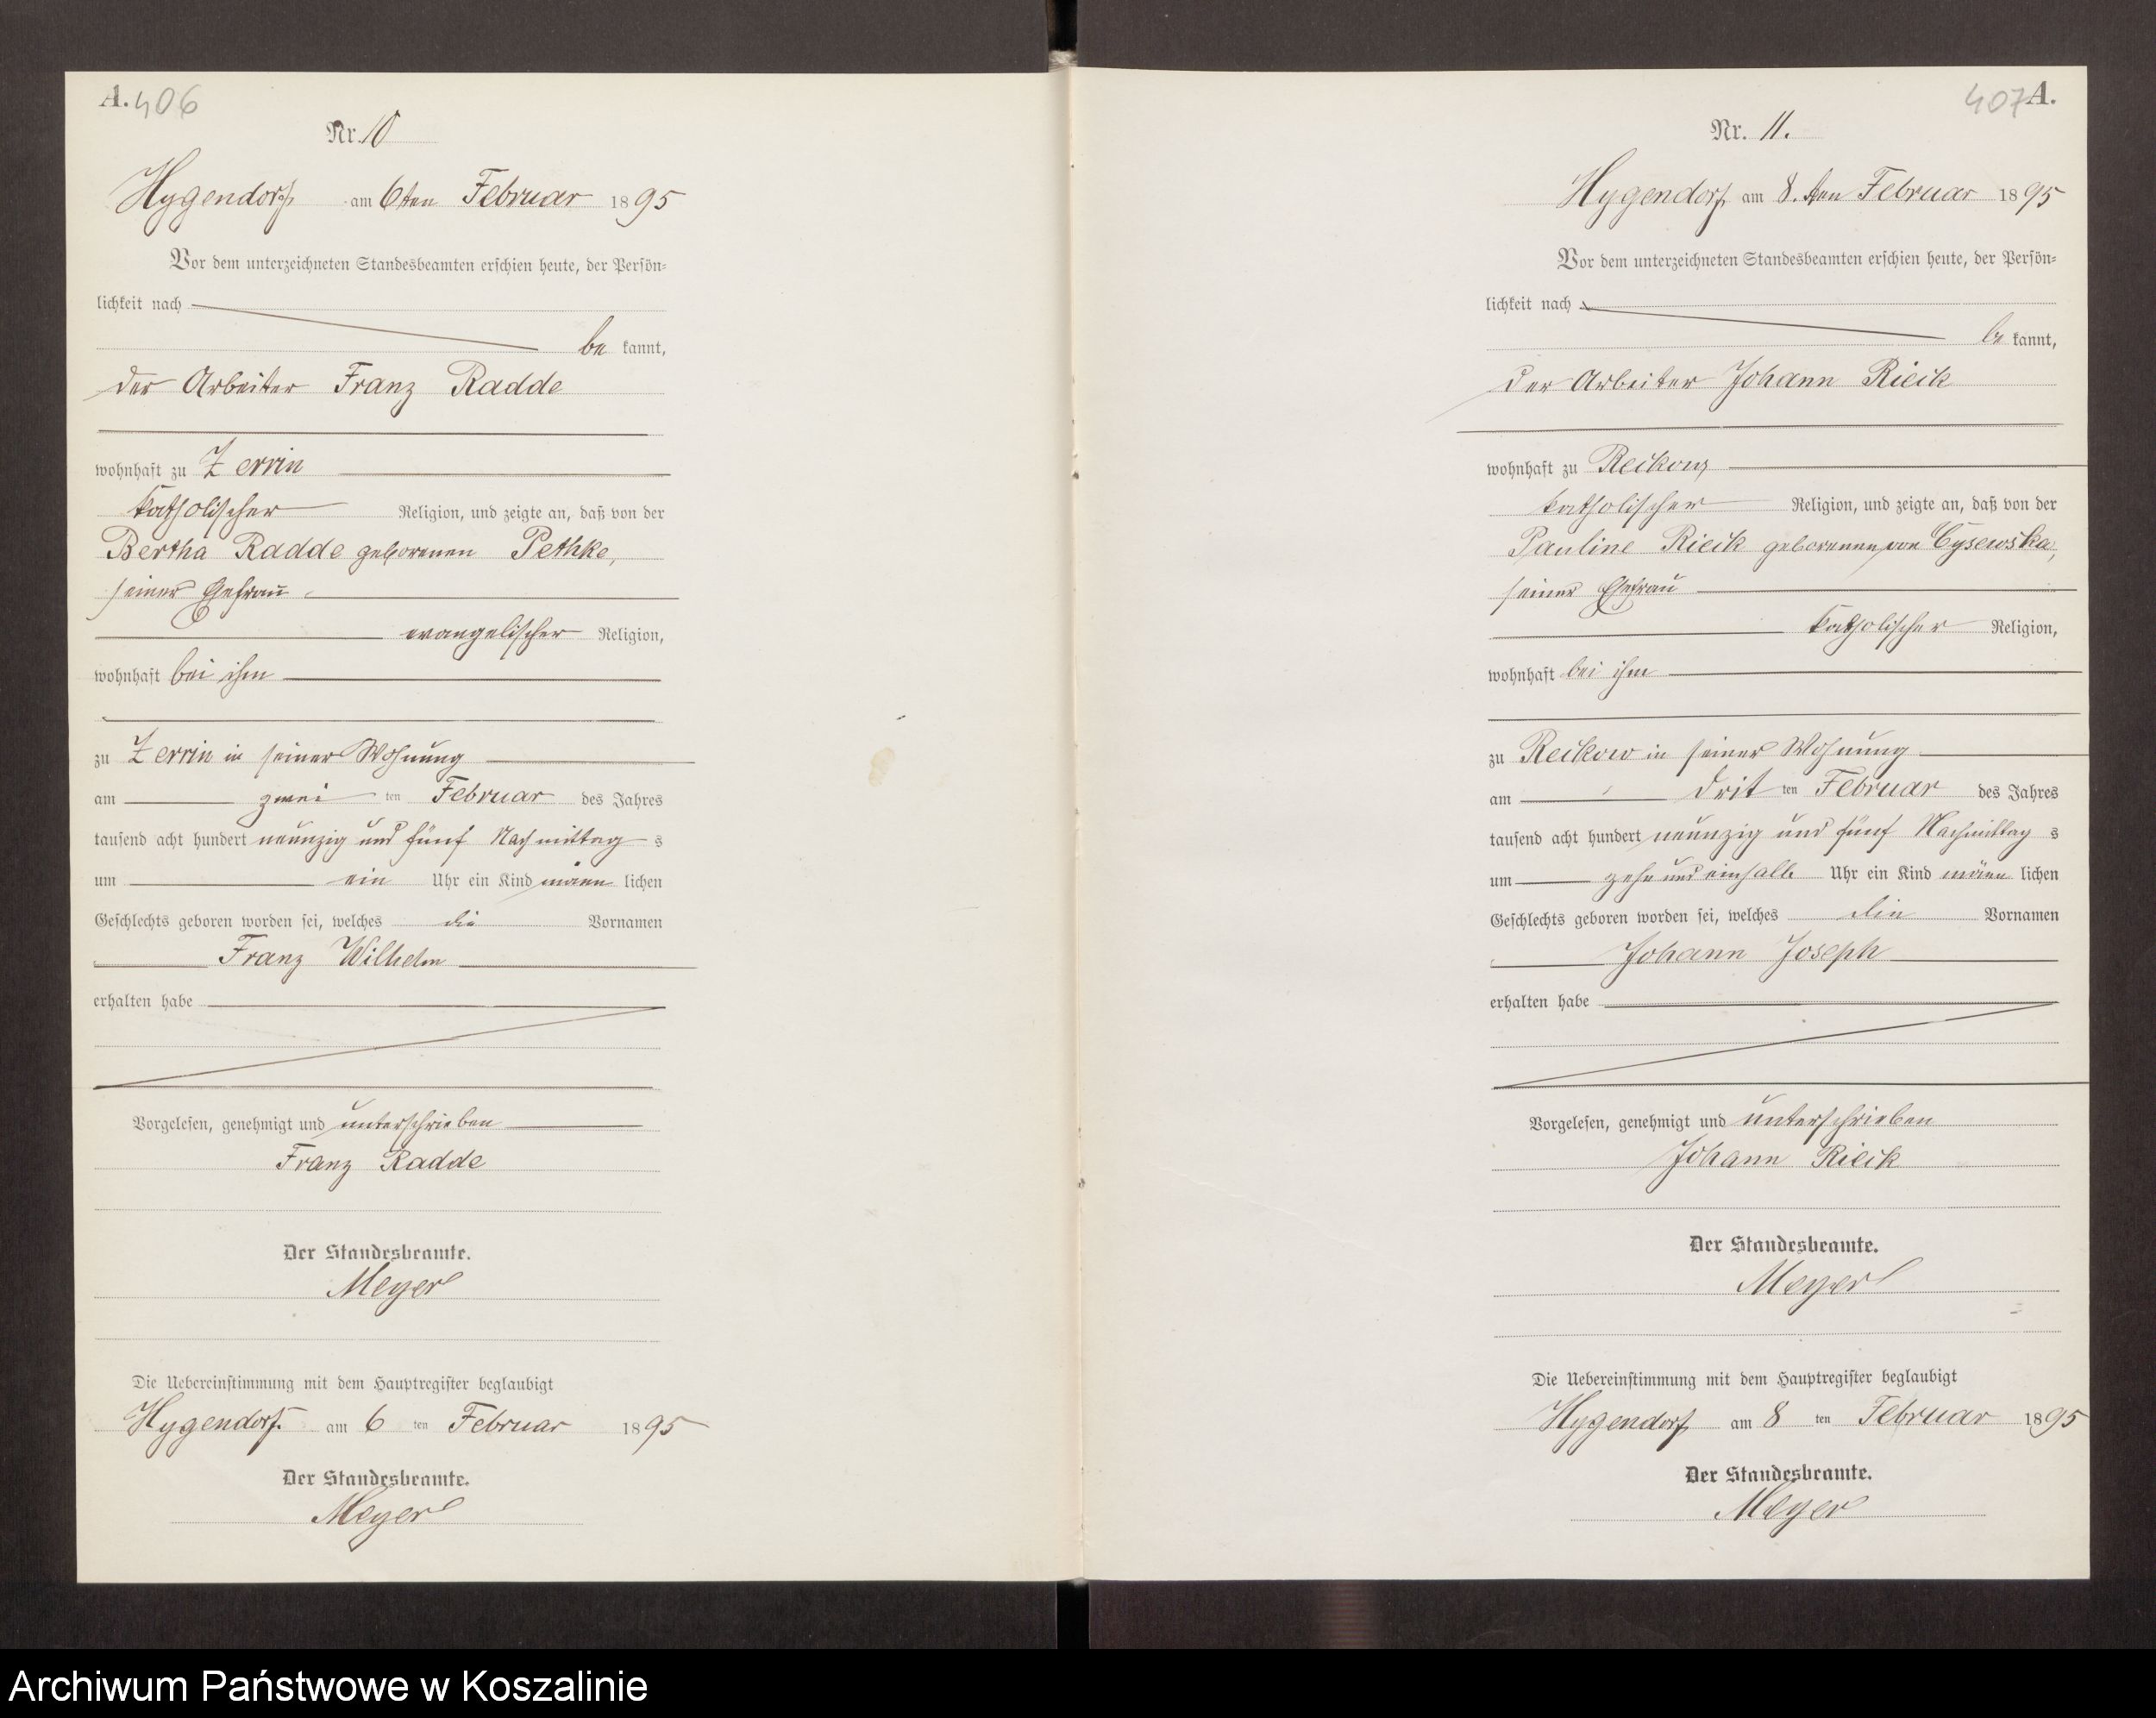 A. 406
Nr. 10
Hygendorf am 6ten Februar 1895
Vor dem unterzeichneten Standesbeamten erschien heute, der Persön-
lichkeit nach
be kannt,
der Arbeiter Franz Radde
wohnhaft zu Zerrin
katholischer Religion, und zeigte an, daß von der
Bertha Radde geborenen Pethke,
seiner Ehefrau
evangelischer Religion,
wohnhaft bei ihm
zu Zerrin in seiner Wohnung
am zwei ten Februar des Jahres
tausend acht hundert neunzig und fünf Nachmittag s
um ein Uhr ein Kind männ lichen
Geschlechts geboren worden sei, welches die Vornamen
Franz Wilhelm
erhalten habe
Vorgelesen, genehmigt und unterschrieben
Franz Radde
Der Standesbeamte.
Meyer
Die Uebereinstimmung mit dem Hauptregister beglaubigt
Hygendorf am 6 ten Februar 1895
Der Standesbeamte.
Meyer
407 A.
Nr. 11.
Hygendorf am 8. ten Februar 1895
Vor dem unterzeichneten Standesbeamten erschien heute, der Persön-
lichkeit nach
be kannt,
der Arbeiter Johann Rieck
wohnhaft zu Reckow
katholischer Religion, und zeigte an, daß von der
Pauline Rieck geborenen von Cysewska,
seiner Ehefrau
katholischer Religion,
wohnhaft bei ihm
zu Reckow in seiner Wohnung
am drit ten Februar des Jahres
tausend acht hundert neunzig und fünf Nachmittag s
um zehn und einhalb Uhr ein Kind männ lichen
Geschlechts geboren worden sei, welches die Vornamen
Johann Joseph
erhalten habe
Vorgelesen, genehmigt und unterschrieben
Johann Rieck
Der Standesbeamte.
Meyer
Die Uebereinstimmung mit dem Hauptregister beglaubigt
Hygendorf am 8 ten Februar 1895
Der Standesbeamte.
Meyer
Archiwum Państwowe w Koszalinie